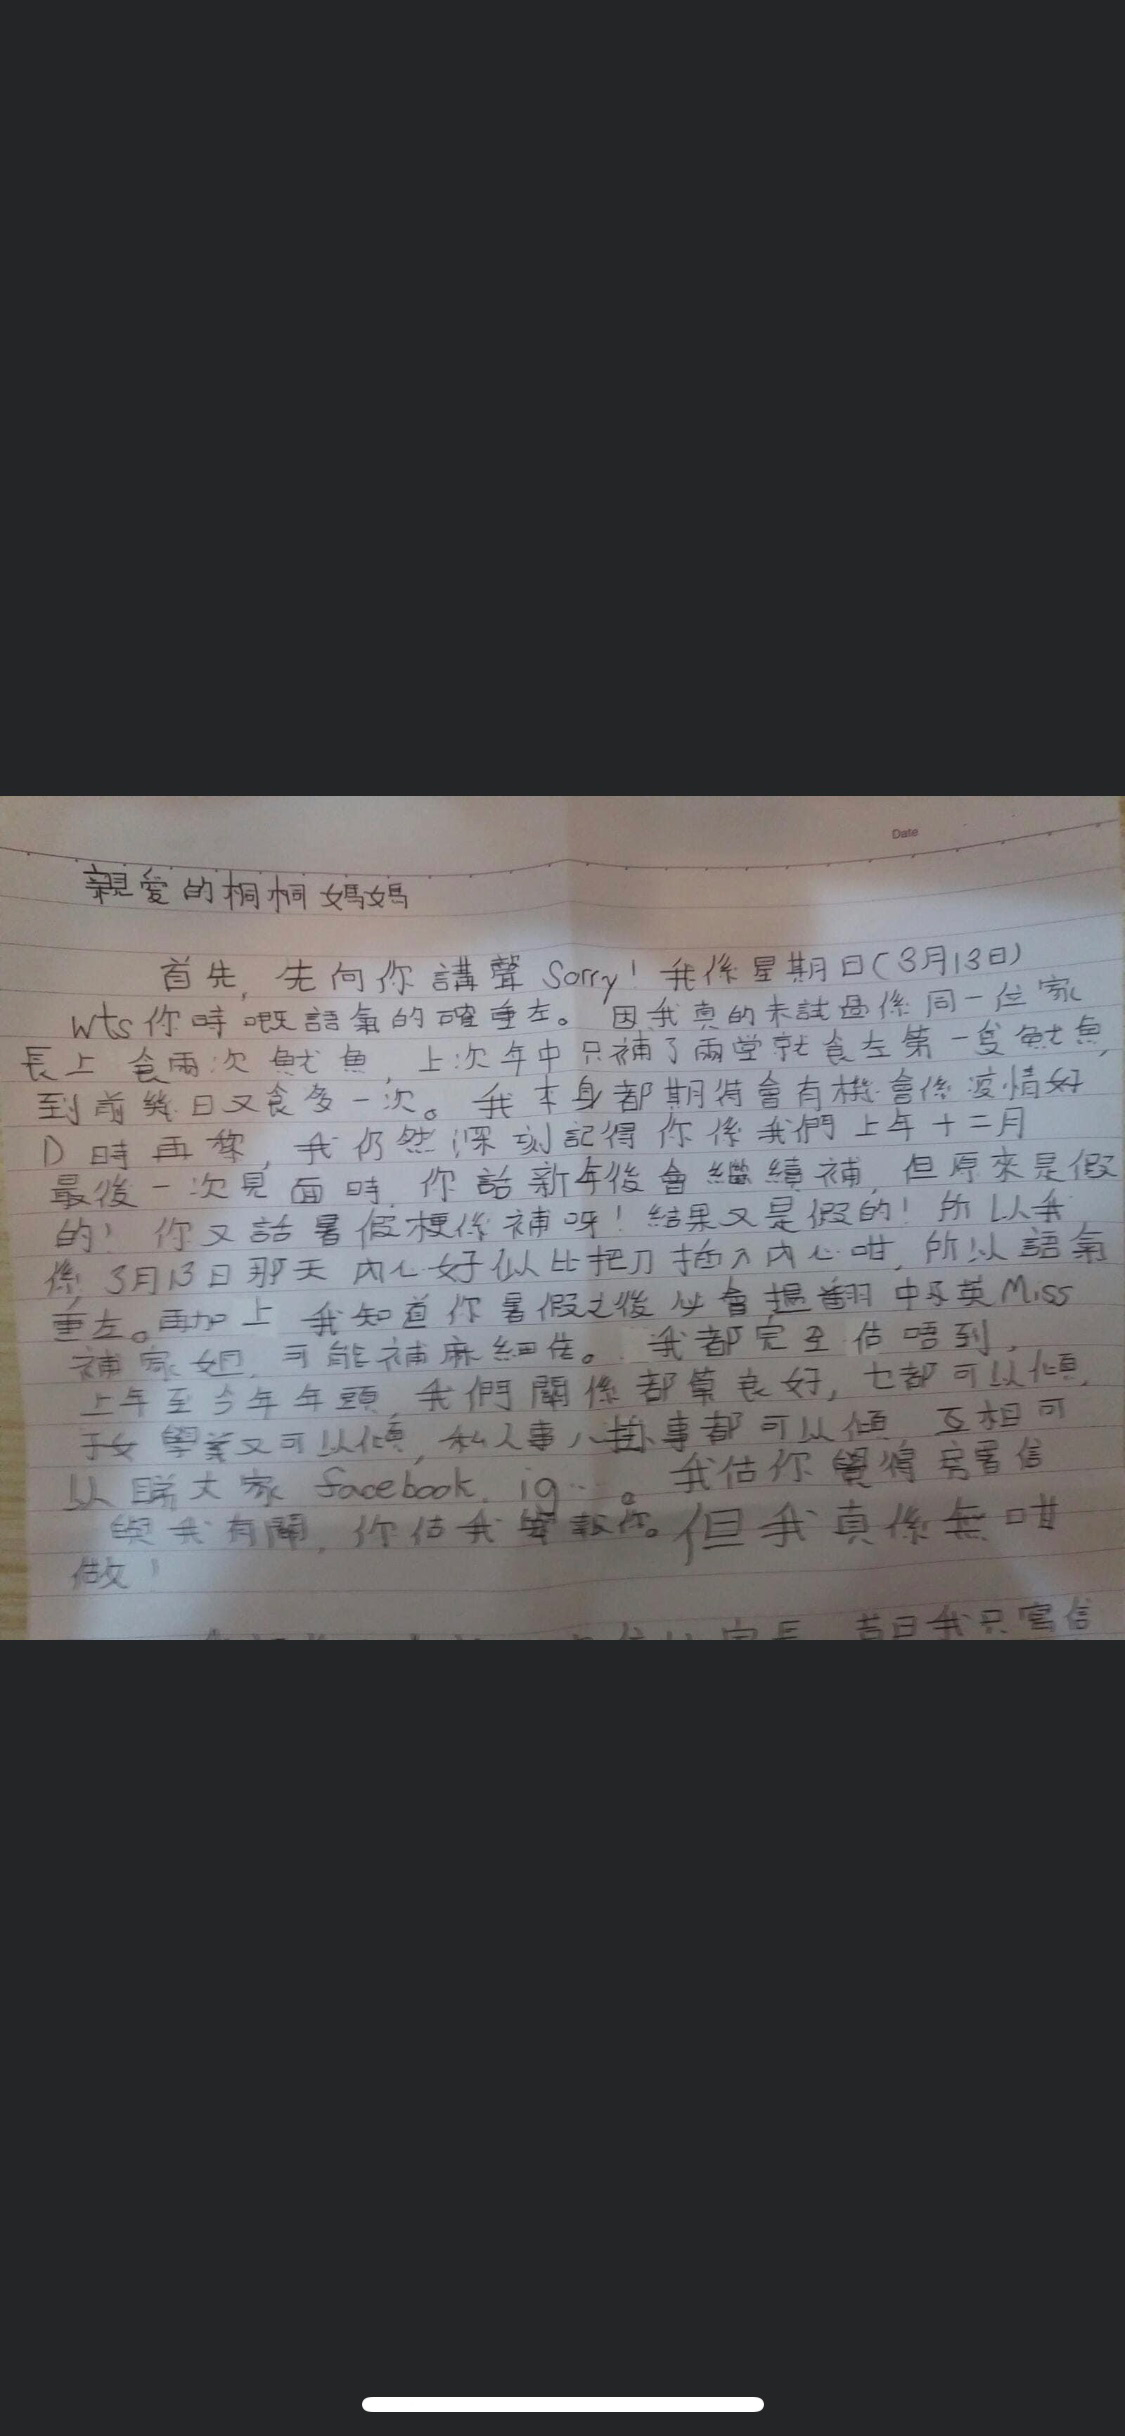 Date
親愛的桐桐媽媽
首先, 先向你講聲 Sorry! 我係星期日(3月13日)
wts你時嘅語氣的確重左。因我真的未試過係同一位家
長上 食兩次魷魚, 上次年中只補了兩堂就食左第一隻魷魚,
到前幾日又食多一次。我本身都期待會有機會係疫情好
D 時再黎, 我仍然深刻記得你係我們上年十二月
最後一次見面時, 你話新年後會繼續補, 但原來是假
的! 你又話暑假梗係補呀! 結果又是假的! 所以我
係 3月13日那天 內心好似比把刀插入內心咁, 所以語氣
重左。再加上 我知道你暑假之後 會搵翻 中英Miss
補家姐, 可能補麻細佬。我都完全估唔到,
上年至今年年頭, 我們關係都算良好, 乜都可以傾,
子女學業又可以傾, 私人事八卦事都可以傾, 互相可
以睇大家 facebook, ig…。我估你覺得 信
與我有關, 你估我 報你。但我真係無咁
做!
家長, 昔日我只寫信